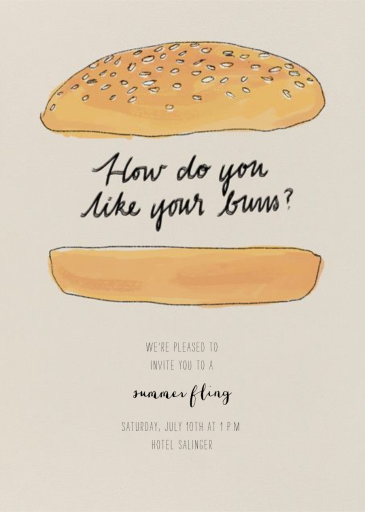 How do you
like your buns?
WE'RE PLEASED TO
INVITE YOU TO A
summer fling
SATURDAY, JULY 10TH AT 1 PM
HOTEL SALINGER